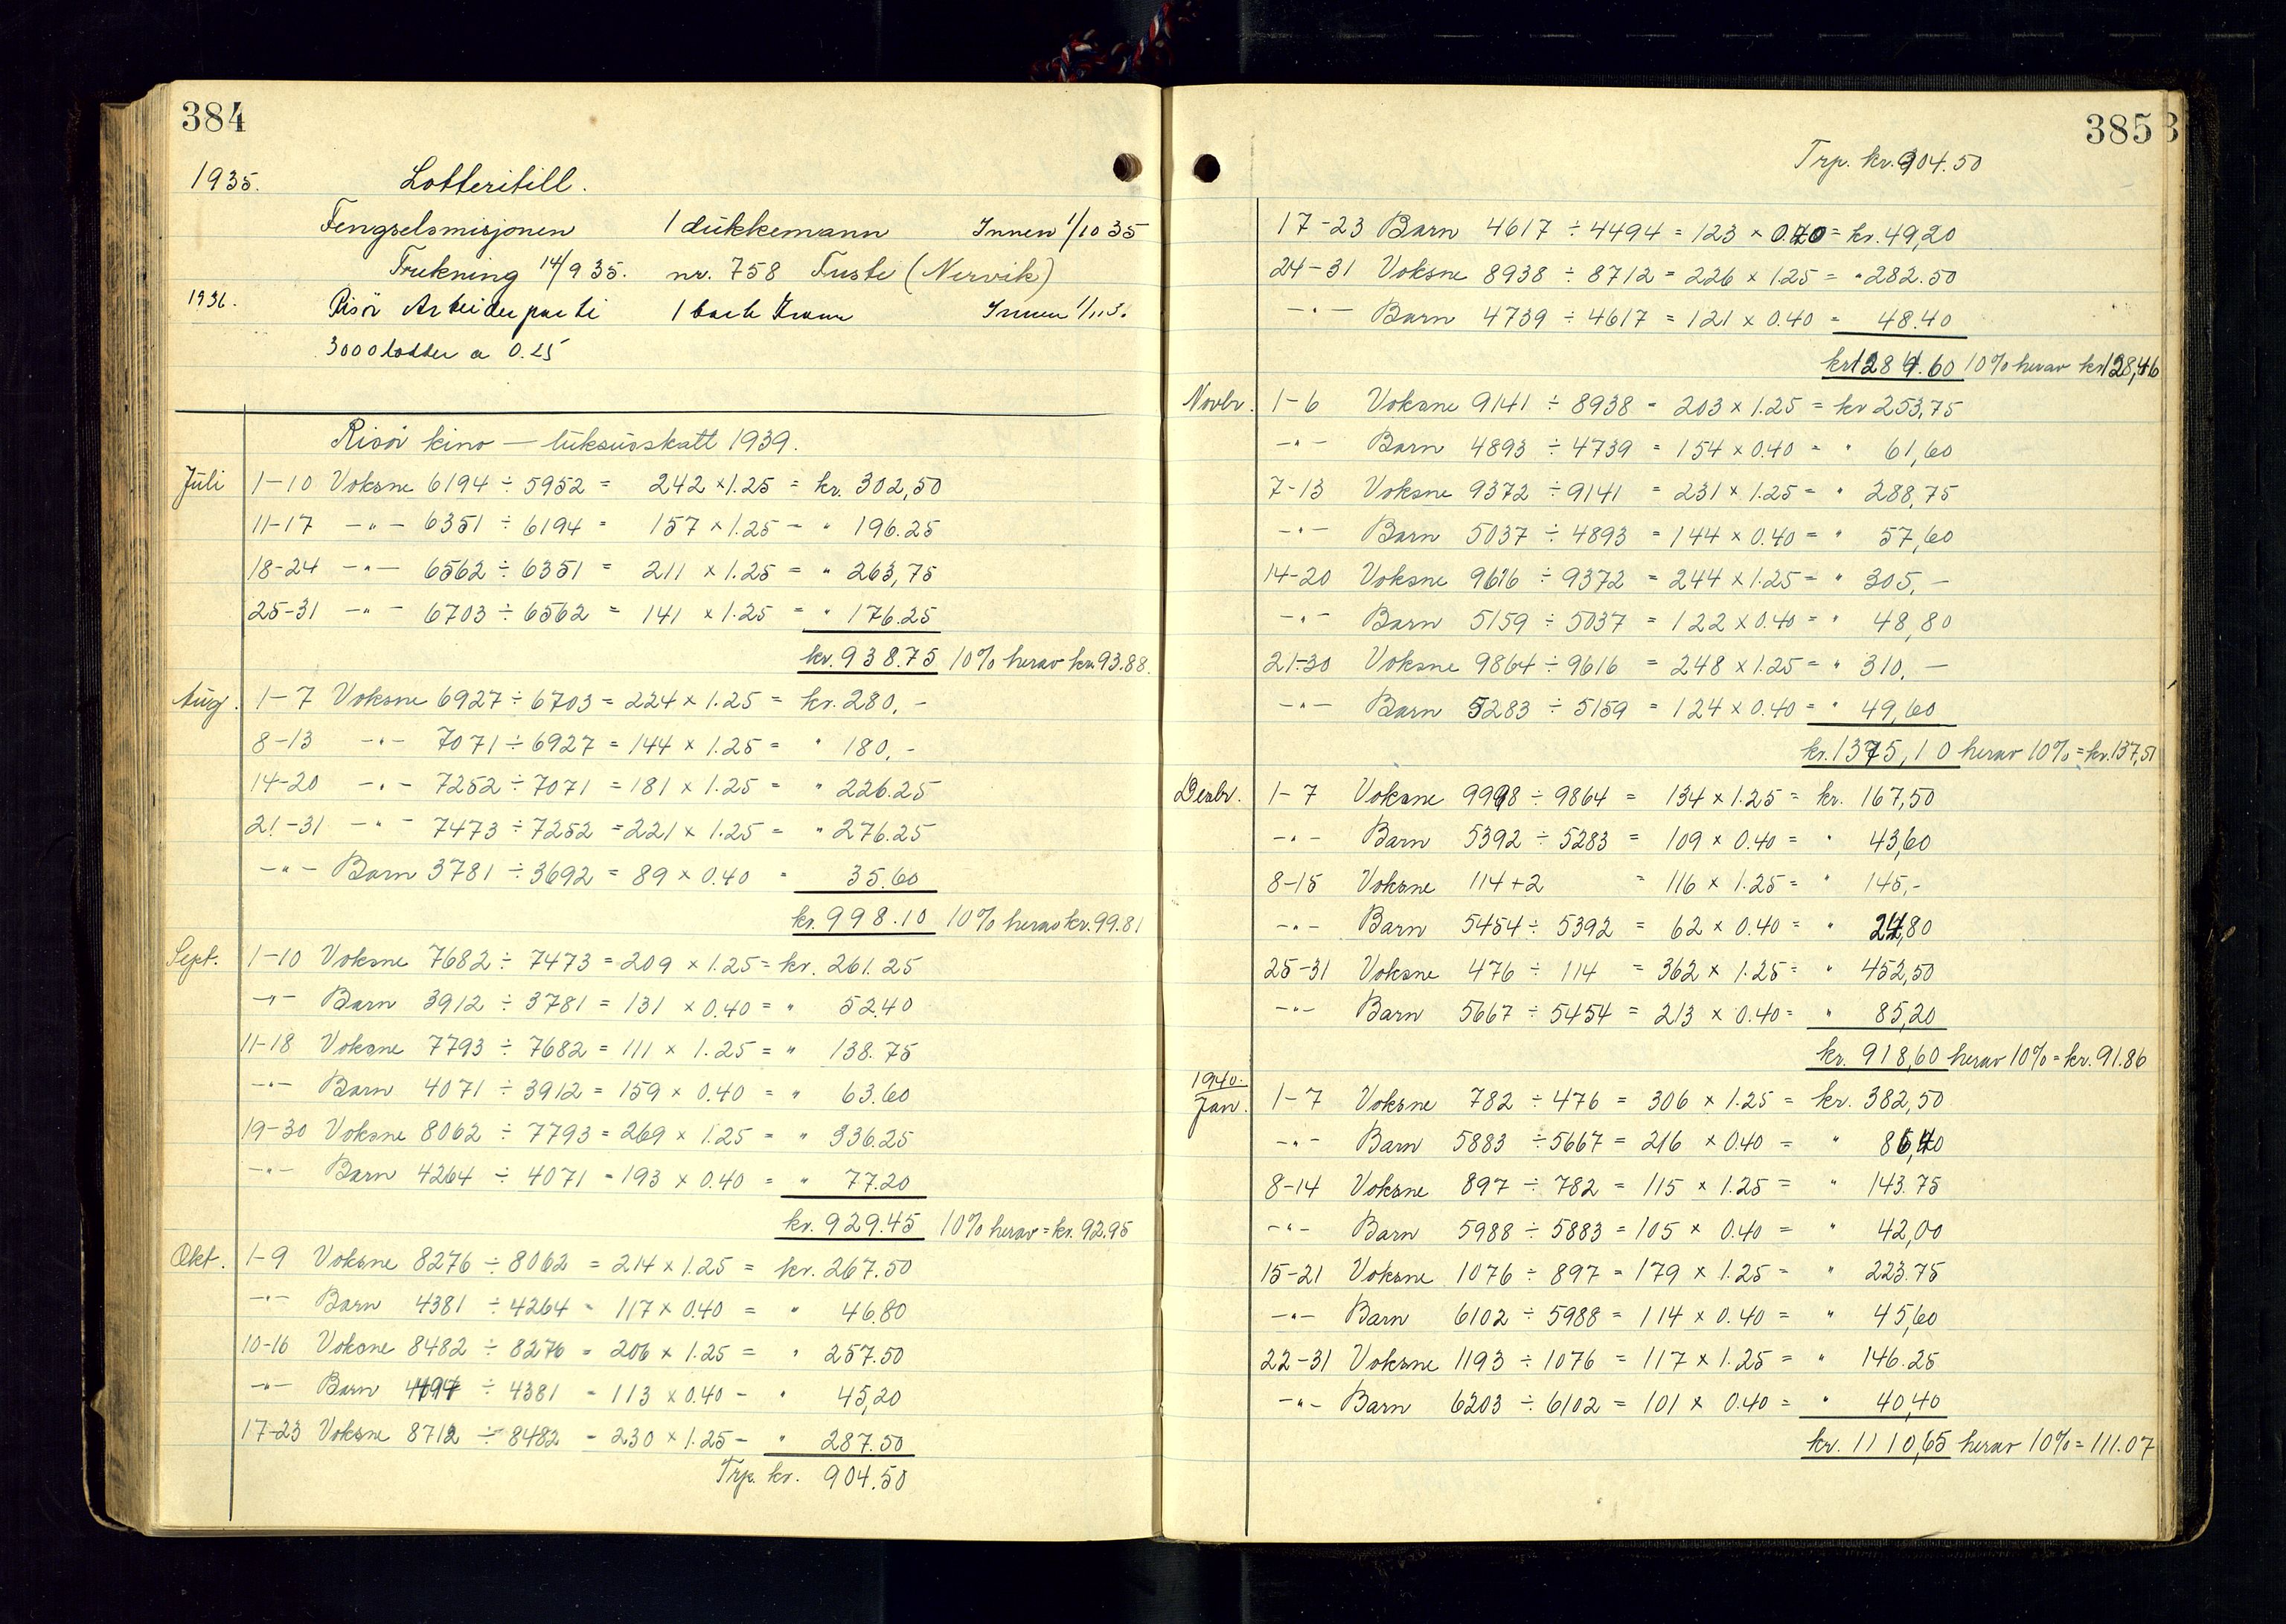 384
1935. Lotteritill.
Fengselsmisjonen 1 dukkemann Innen 1/10 35
Trekning 14/9 35. nr. 758 Tuste (Nervik)
1936. Risör Arbeiderparti 1 Innen
3000 lodder a 0.25
Risör kino — luksusskatt 1939.
Juli 1-10 Voksne 6194 ÷ 5952 = 242 × 1.25 = kr. 302,50
11-17 -"- 6351 ÷ 6194 = 157 × 1.25 = " 196.25
18-24 -"- 6562 ÷ 6351 = 211 × 1.25 = " 263,75
25-31 -"- 6703 ÷ 6562 = 141 × 1.25 = " 176.25
kr. 938.75 10% herav kr. 93.88.
Aug. 1-7 Voksne 6927 ÷ 6703 = 224 × 1.25 = kr. 280,-
8-13 -"- 7071 ÷ 6927 = 144 × 1.25 = " 180,-
14-20 -"- 7252 ÷ 7071 = 181 × 1.25 = " 226.25
21-31 -"- 7473 ÷ 7252 = 221 × 1.25 = " 276.25
-"- Barn 3781 ÷ 3692 = 89 × 0.40 = 35.60
kr. 998.10 10% herav kr. 99.81
Sept. 1-10 Voksne 7682 ÷ 7473 = 209 × 1.25 = kr. 261.25
-"- Barn 3912 ÷ 3781 = 131 × 0.40 = " 52.40
11-18 Voksne 7793 ÷ 7682 = 111 × 1.25 = " 138.75
-"- Barn 4071 ÷ 3912 = 159 × 0.40 = " 63.60
19-30 Voksne 8062 ÷ 7793 = 269 × 1.25 = " 336.25
-"- Barn 4264 ÷ 4071 = 193 × 0.40 = " 77.20
kr. 929.45 10% herav = kr. 92.95
Okt. 1-9 Voksne 8276 ÷ 8062 = 214 × 1.25 = kr. 267.50
-"- Barn 4381 ÷ 4264 = 117 × 0.40 = " 46.80
10-16 Voksne 8482 ÷ 8276 = 206 × 1.25 = " 257.50
-"- Barn 4494 ÷ 4381 = 113 × 0.40 = " 45,20
17-23 Voksne 8712 ÷ 8482 = 230 × 1.25 = " 287.50
Trp. kr. 904.50
385
Trp. kr. 904.50
17-23 Barn 4617 ÷ 4494 = 123 × 0.40 = kr. 49,20
24-31 Voksne 8938 ÷ 8712 = 226 × 1.25 = " 282.50
-"- Barn 4739 ÷ 4617 = 121 × 0.40 = 48.40
kr 1284.60 10% herav kr 128,46
Novbr. 1-6 Voksne 9141 ÷ 8938 = 203 × 1.25 = kr 253,75
-"- Barn 4893 ÷ 4739 = 154 × 0.40 = " 61,60
7-13 Voksne 9372 ÷ 9141 = 231 × 1.25 = " 288,75
-"- Barn 5037 ÷ 4893 = 144 × 0.40 = " 57,60
14-20 Voksne 9616 ÷ 9372 = 244 × 1.25 = " 305,-
-"- Barn 5159 ÷ 5037 = 122 × 0.40 = " 48,80
21-30 Voksne 9864 ÷ 9616 = 248 × 1.25 = " 310,-
-"- Barn 5283 ÷ 5159 = 124 × 0.40 = " 49,60
kr. 1375,10 herav 10% = kr. 137,51
Desbr. 1-7 Voksne 9998 ÷ 9864 = 134 × 1.25 = kr. 167,50
-"- Barn 5392 ÷ 5283 = 109 × 0.40 = " 43,60
8-15 Voksne 114 + 2 = 116 × 1.25 = " 145,-
-"- Barn 5454 ÷ 5392 = 62 × 0.40 = " 24,80
25-31 Voksne 476 ÷ 114 = 362 × 1.25 = " 452,50
-"- Barn 5667 ÷ 5454 = 213 × 0.40 = " 85,20
kr. 918,60 herav 10% = kr. 91.86
1940.
Jan. 1-7 Voksne 782 ÷ 476 = 306 × 1.25 = kr. 382,50
-"- Barn 5883 ÷ 5667 = 216 × 0.40 = " 86,40
8-14 Voksne 897 ÷ 782 = 115 × 1.25 = " 143.75
-"- Barn 5988 ÷ 5883 = 105 × 0.40 = " 42,00
15-21 Voksne 1076 ÷ 897 = 179 × 1.25 = " 223.75
-"- Barn 6102 ÷ 5988 = 114 × 0.40 = " 45,60
22-31 Voksne 1193 ÷ 1076 = 117 × 1.25 = " 146.25
-"- Barn 6203 ÷ 6102 = 101 × 0.40 = " 40,40
kr. 1110,65 herav 10% = 111.07